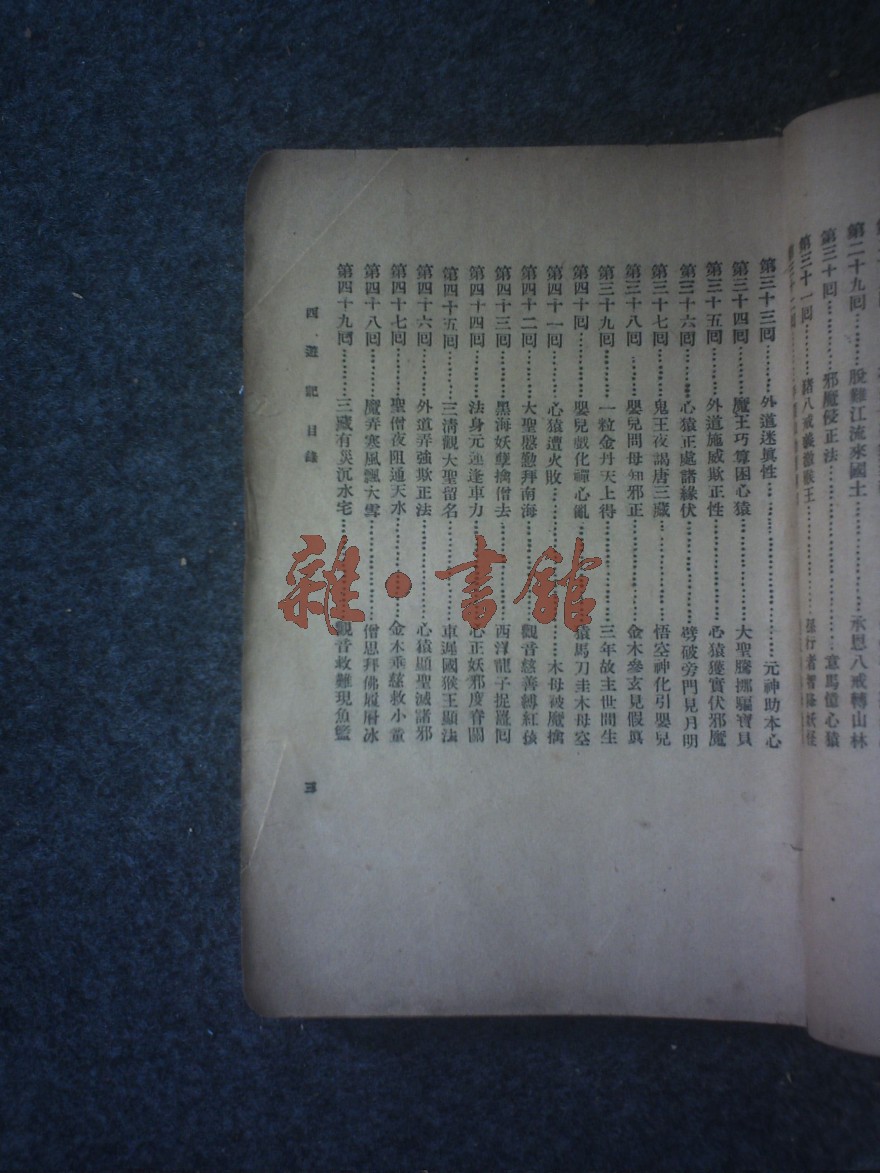 第二十九回………脫難江流來國土………承恩八戒轉山林
第三十回………邪魔侵正法………意馬憶心猿
第三十一回………豬八戒義激猴王………行者智降妖怪
第三十三回………外道迷眞性………元神助本心
第三十四回………魔王巧算困心猿………大聖騰挪騙寶貝
第三十五回………外道施威欺正性………心猿獲寶伏邪魔
第三十六回………心猿正處諸緣伏………劈破旁門見月明
第三十七回………鬼王夜謁唐三藏………悟空神化引嬰兒
第三十八回………嬰兒問母知邪正………金木參玄見假眞
第三十九回………一粒金丹天上得………三年故主世間生
第四十回………嬰兒戲化禪心亂………猿馬刀圭木母空
第四十一回………心猿遭火敗………木母被魔擒
第四十二回………大聖慇懃拜南海………觀音慈善縛紅孩
第四十三回………黑海妖孽擒僧去………西洋龍子捉鼉回
第四十四回………法身元運逢車力………心正妖邪度脊關
第四十五回………三淸觀大聖留名………車遲國猴王顯法
第四十六回………外道弄強欺正法………心猿顯聖滅諸邪
第四十七回………聖僧夜阻通天水………金木乘慈救小童
第四十八回………魔弄寒風飄大雪………僧思拜佛履層冰
第四十九回………三藏有災沉水宅………觀音救難現魚籃
西遊記目錄
三
雜·書館